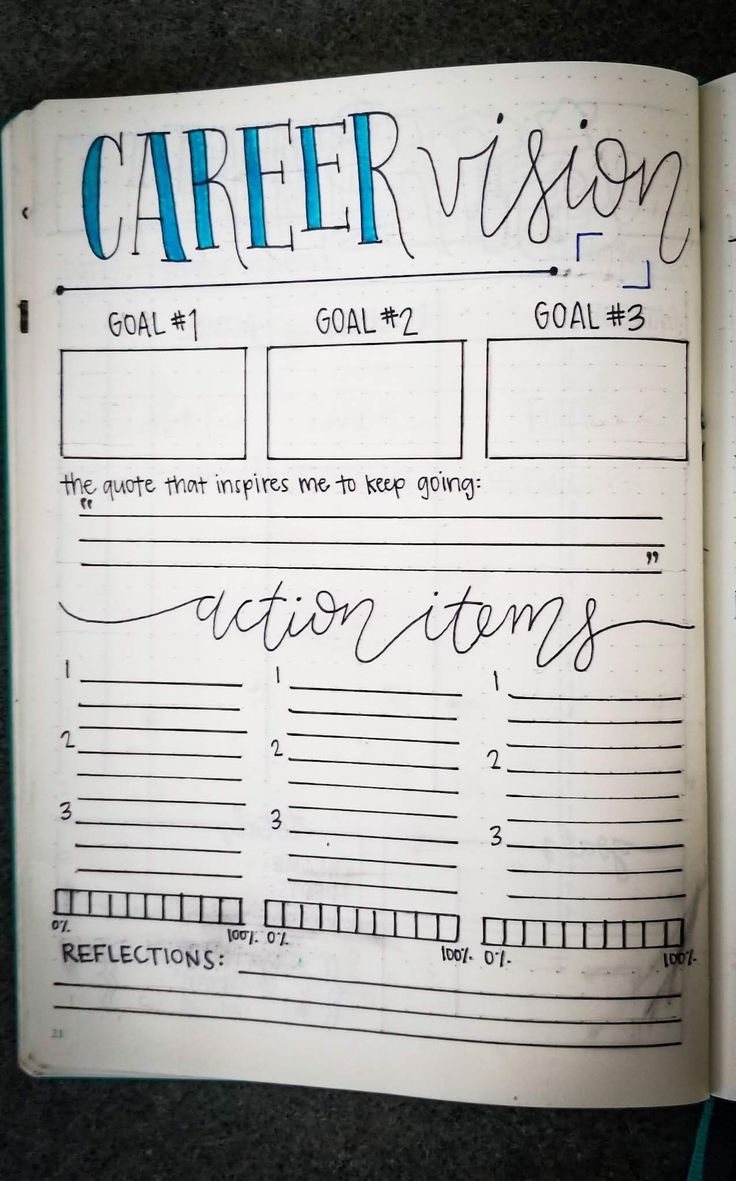 CAREER vision
GOAL #1 GOAL #2 GOAL #3
the quote that inspires me to keep going:
“
”
action items
1 1 1
2 2 2
3 3 3
0% 100% 0% 100% 0% 100%
REFLECTIONS: